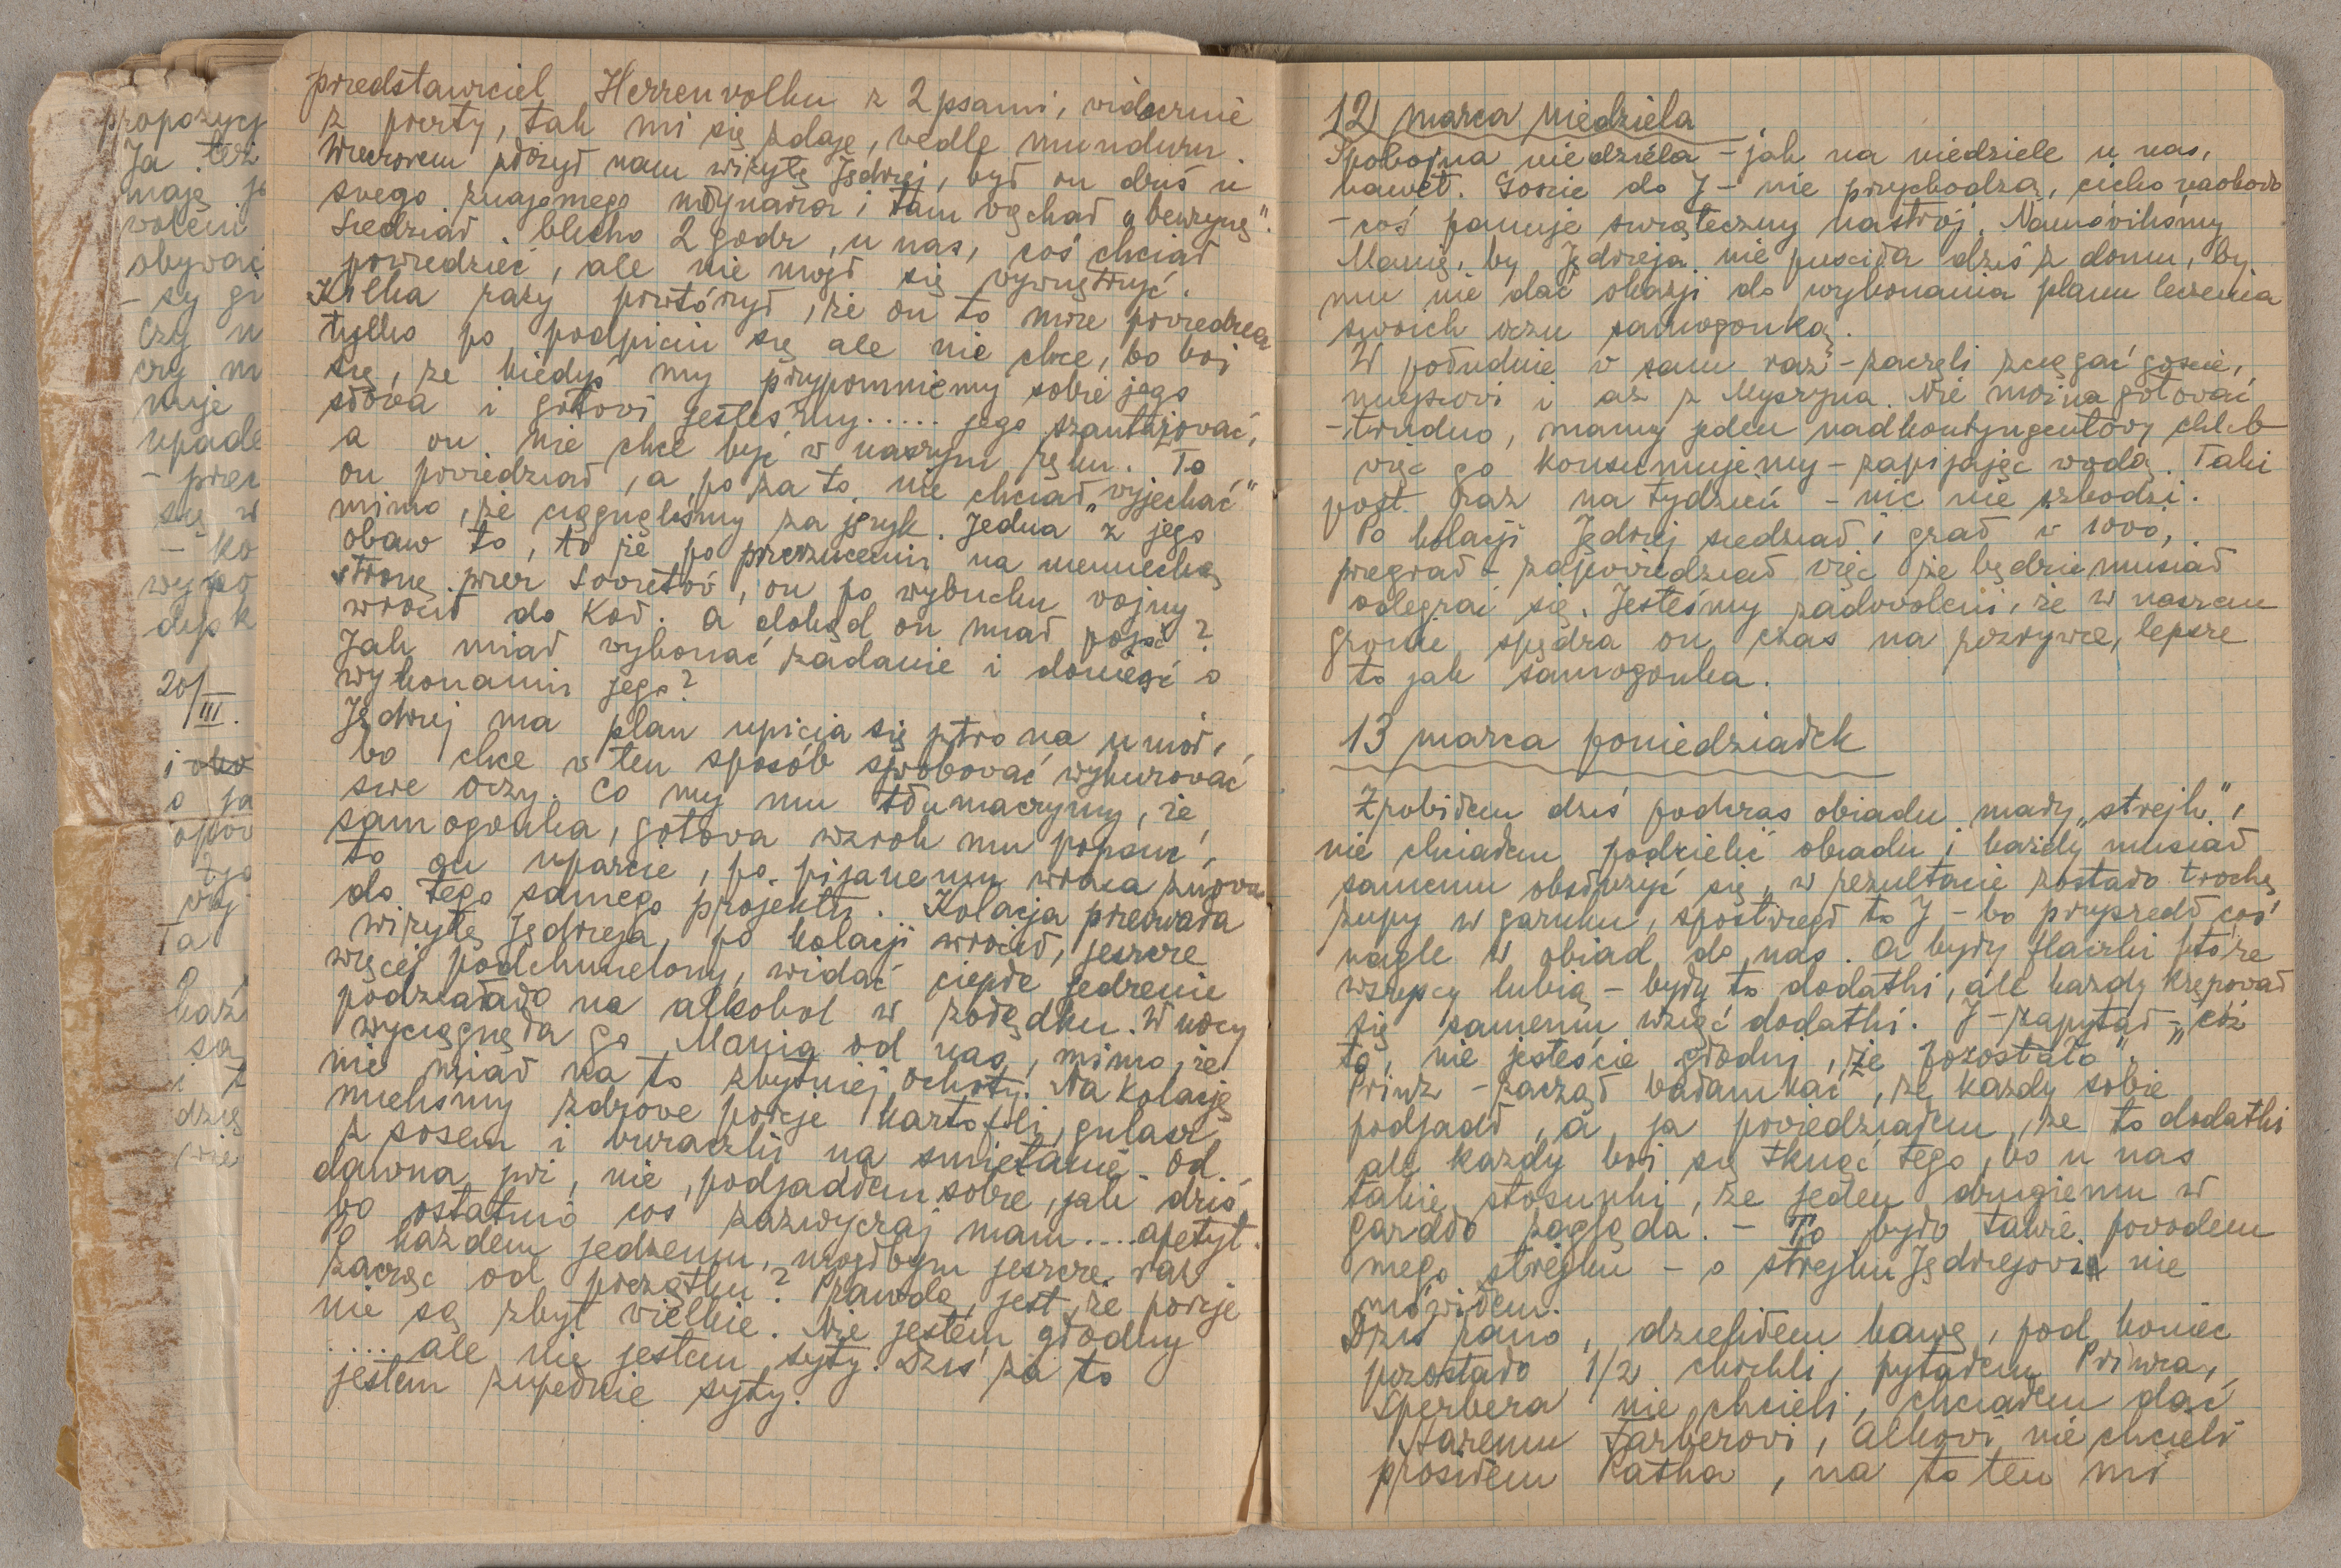 propozycj
Ja też
mają je
woleni
obywać
- są gi
czy n
czy m
muje
upade
- prze
się w
- ko
wypo
dysk
20/III.
i
o ja
opow
wy
Ta
o
każ
są
i z
dzię
wie
przedstawiciel Herrenvolku z 2 psami, widocznie
z poczty, tak mi się zdaje, wedle munduru.
Wieczorem złożył nam wizytę Jędrzej, był on dziś u
swego znajomego młynarza i tam wąchał "benzynę".
Siedział blisko 2 godz, u nas, coś chciał
powiedzieć, ale nie mógł się wywnętrzyć.
Kilka razy powtórzył, że on to może powiedzieć
tylko po podpiciu się ale nie chce, bo boi
się, że kiedyś my przypomniemy sobie jego
słowa i gotowi jesteśmy..... jego szantażować,
a on nie chce być w naszym ręku. To
on powiedział, a po za to nie chciał "wyjechać"
mimo, że ciągnęliśmy za język. Jedna z jego
obaw to, to że po przerzuceniu na niemiecką
stronę przez Sowietów, on po wybuchu wojny
wrócił do Koł. A dokąd on miał pójść?
Jak miał wykonać zadanie i donieść o
wykonaniu jego?
Jędrzej ma plan upicia się jutro na umór,
bo chce w ten sposób spróbować wykurować
swe oczy. Co my mu tłumaczymy, że
samogonka, gotowa wzrok mu popsuć,
to on uparcie, po pijanemu wraca znowu
do tego samego projektu. Kolacja przerwała
wizytę Jędrzeja, po kolacji wrócił, jeszcze
więcej podchmielony, widać ciepłe jedzenie
podziałało na alkohol w żołądku. W nocy
wyciągnęła go Mania od nas, mimo, że
nie miał na to zbytniej ochoty. Na kolację
mieliśmy zdrowe porcje kartofli, gulasz
z sosem i buraczki na śmietanie. Od
dawna już, nie podjadłem sobie, jak dziś,
bo ostatnio coś zazwyczaj mam.... apetyt.
Po każdem jedzeniu, mógłbym jeszcze raz
zacząć od początku? Prawdą jest, że porcje
nie są zbyt wielkie. Nie jestem głodny
.... ale nie jestem syty. Dziś za to
jestem zupełnie syty.
12 marca niedziela
Spokojna niedziela - jak na niedziele u nas,
nawet. Goście do J - nie przychodzą, cicho naokoło
- coś panuje świąteczny nastrój. Namówiliśmy
Manię, by Jędrzeja nie puściła dziś z domu, by
mu nie dać okazji do wykonania planu leczenia
swoich oczu samogonką.
W południe w sam raz - zaczęli zciągać goście,
miejscowi i aż z Myszyna. Nie można gotować
- trudno, mamy jeden nadkontyngentowy chleb
więc go konsumujemy - zapijając wodą. Taki
post raz na tydzień - nic nie szkodzi.
Po kolacji Jędrzej siedział i grał w 1000,
przegrał - zapowiedział więc że będzie musiał
odegrać się. Jesteśmy zadowoleni, że w naszem
gronie spędza on czas na rozrywce, lepsze
to jak samogonka.
13 marca poniedziałek
Zrobiłem dziś podczas obiadu mały "strejk",
nie chciałem podzielić obiadu i każdy musiał
samemu obsłużyć się, w rezultacie zostało trochę
zupy w garnku, spostrzegł to J - bo przyszedł coś
nagle w obiad do nas. A były flaczki które
wszyscy lubią - były to dodatki, ale każdy krępował
się samemu wziąć dodatki. J - zapytał - "cóż
to, nie jesteście głodni, że pozostało".
Prinz - zaczął bałamkać, że każdy sobie
podjadł, a ja powiedziałem, że to dodatki
ale każdy boi się tknąć tego, bo u nas
takie stosunki, że jeden drugiemu w
gardło zagląda. - To było także powodem
mego strejku - o strejku Jędrzejowi nie
mówiłem.
Dziś rano, dzieliłem kawę, pod koniec
pozostało 1/2 chochli, pytałem Prinza,
Sperbera nie chcieli, chciałem dać
staremu Farberowi, Alkowi nie chcieli
prosiłem Katha, na to ten mi